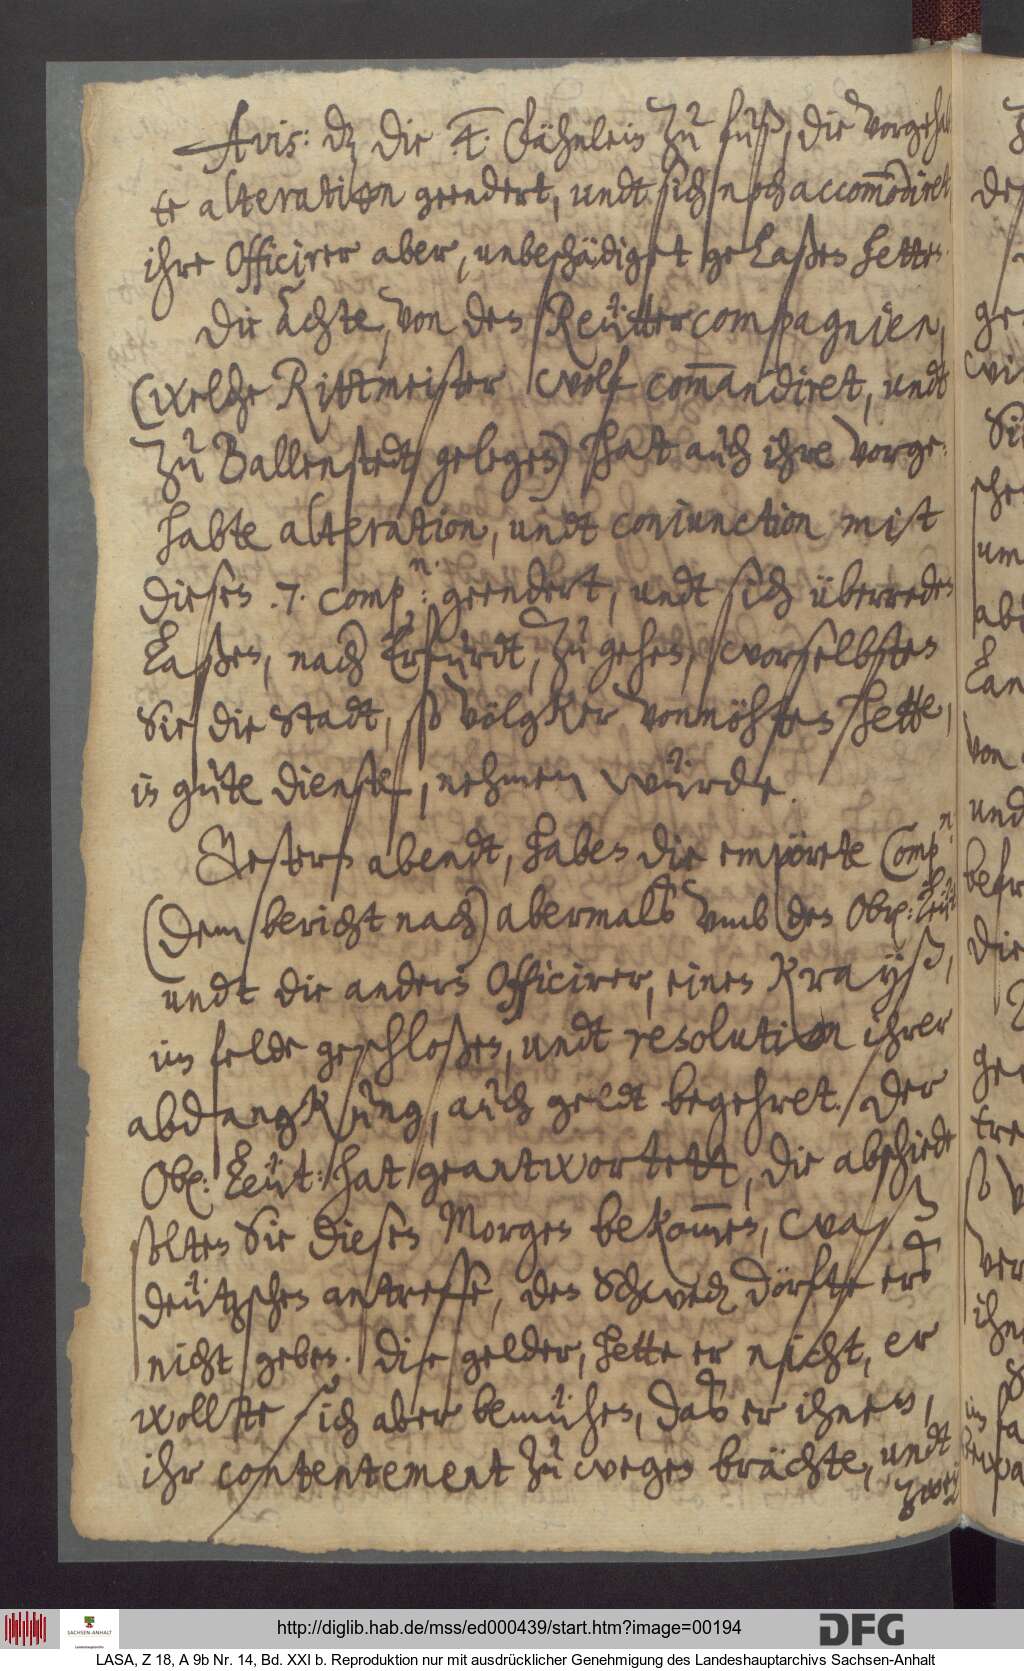 Avis: dz die .4. Fähnlein zu fuß, die vorgehab
te alteration geendert, undt sich noch accommodiret
ihre Officirer aber, unbeschädiget gelaßen hetten.
Die achte, von den Reütter compagnien,
(welche Rittmeister Wolf commandiret, undt
zu Ballenstedt gelegen) hat auch ihre vorge-
habte alteration, undt conjunction mist
diesen .7. comp:n geendert, undt sich überreden
laßen, nach Erfurdt, zu gehen, worselbsten
Sie die Stadt, so völgker vonnöhten hette,
in gute dienste, nehmen würde.
Gestern abendt, haben die empörete Comp:n
(dem bericht nach) abermals umb den Obr: Leüt
undt die andern Officirer, einen Krayß,
im felde geschloßen, undt resolution ihrer
abdangkung, auch geldt begehret. Der
Obr: Leüt: hat geantwortett, die abschiede
solten Sie diesen Morgen bekommen, waß
deützschen antreffe, den Schwed dörfte ers
nicht geben. Die gelder, hette er nicht, er
wollte sich aber bemühen, das er ihnen,
ihr contentement zu wegen brächte, undt
zwey
des
ge
wi
Sie
um
von
und
die
ver
http://diglib.hab.de/mss/ed000439/start.htm?image=00194
SACHSEN-ANHALT
DFG
LASA, Z 18, A 9b Nr. 14, Bd. XXI b. Reproduktion nur mit ausdrücklicher Genehmigung des Landeshauptarchivs Sachsen-Anhalt